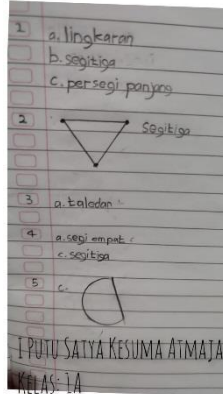 1 a. lingkaran
b. segitiga
c. persegi panjang
2 Segitiga
3 a. taledan
4 a. segi empat
c. segitiga
5 c.
I PUTU SATYA KESUMA ATMAJA
KELAS: 1A